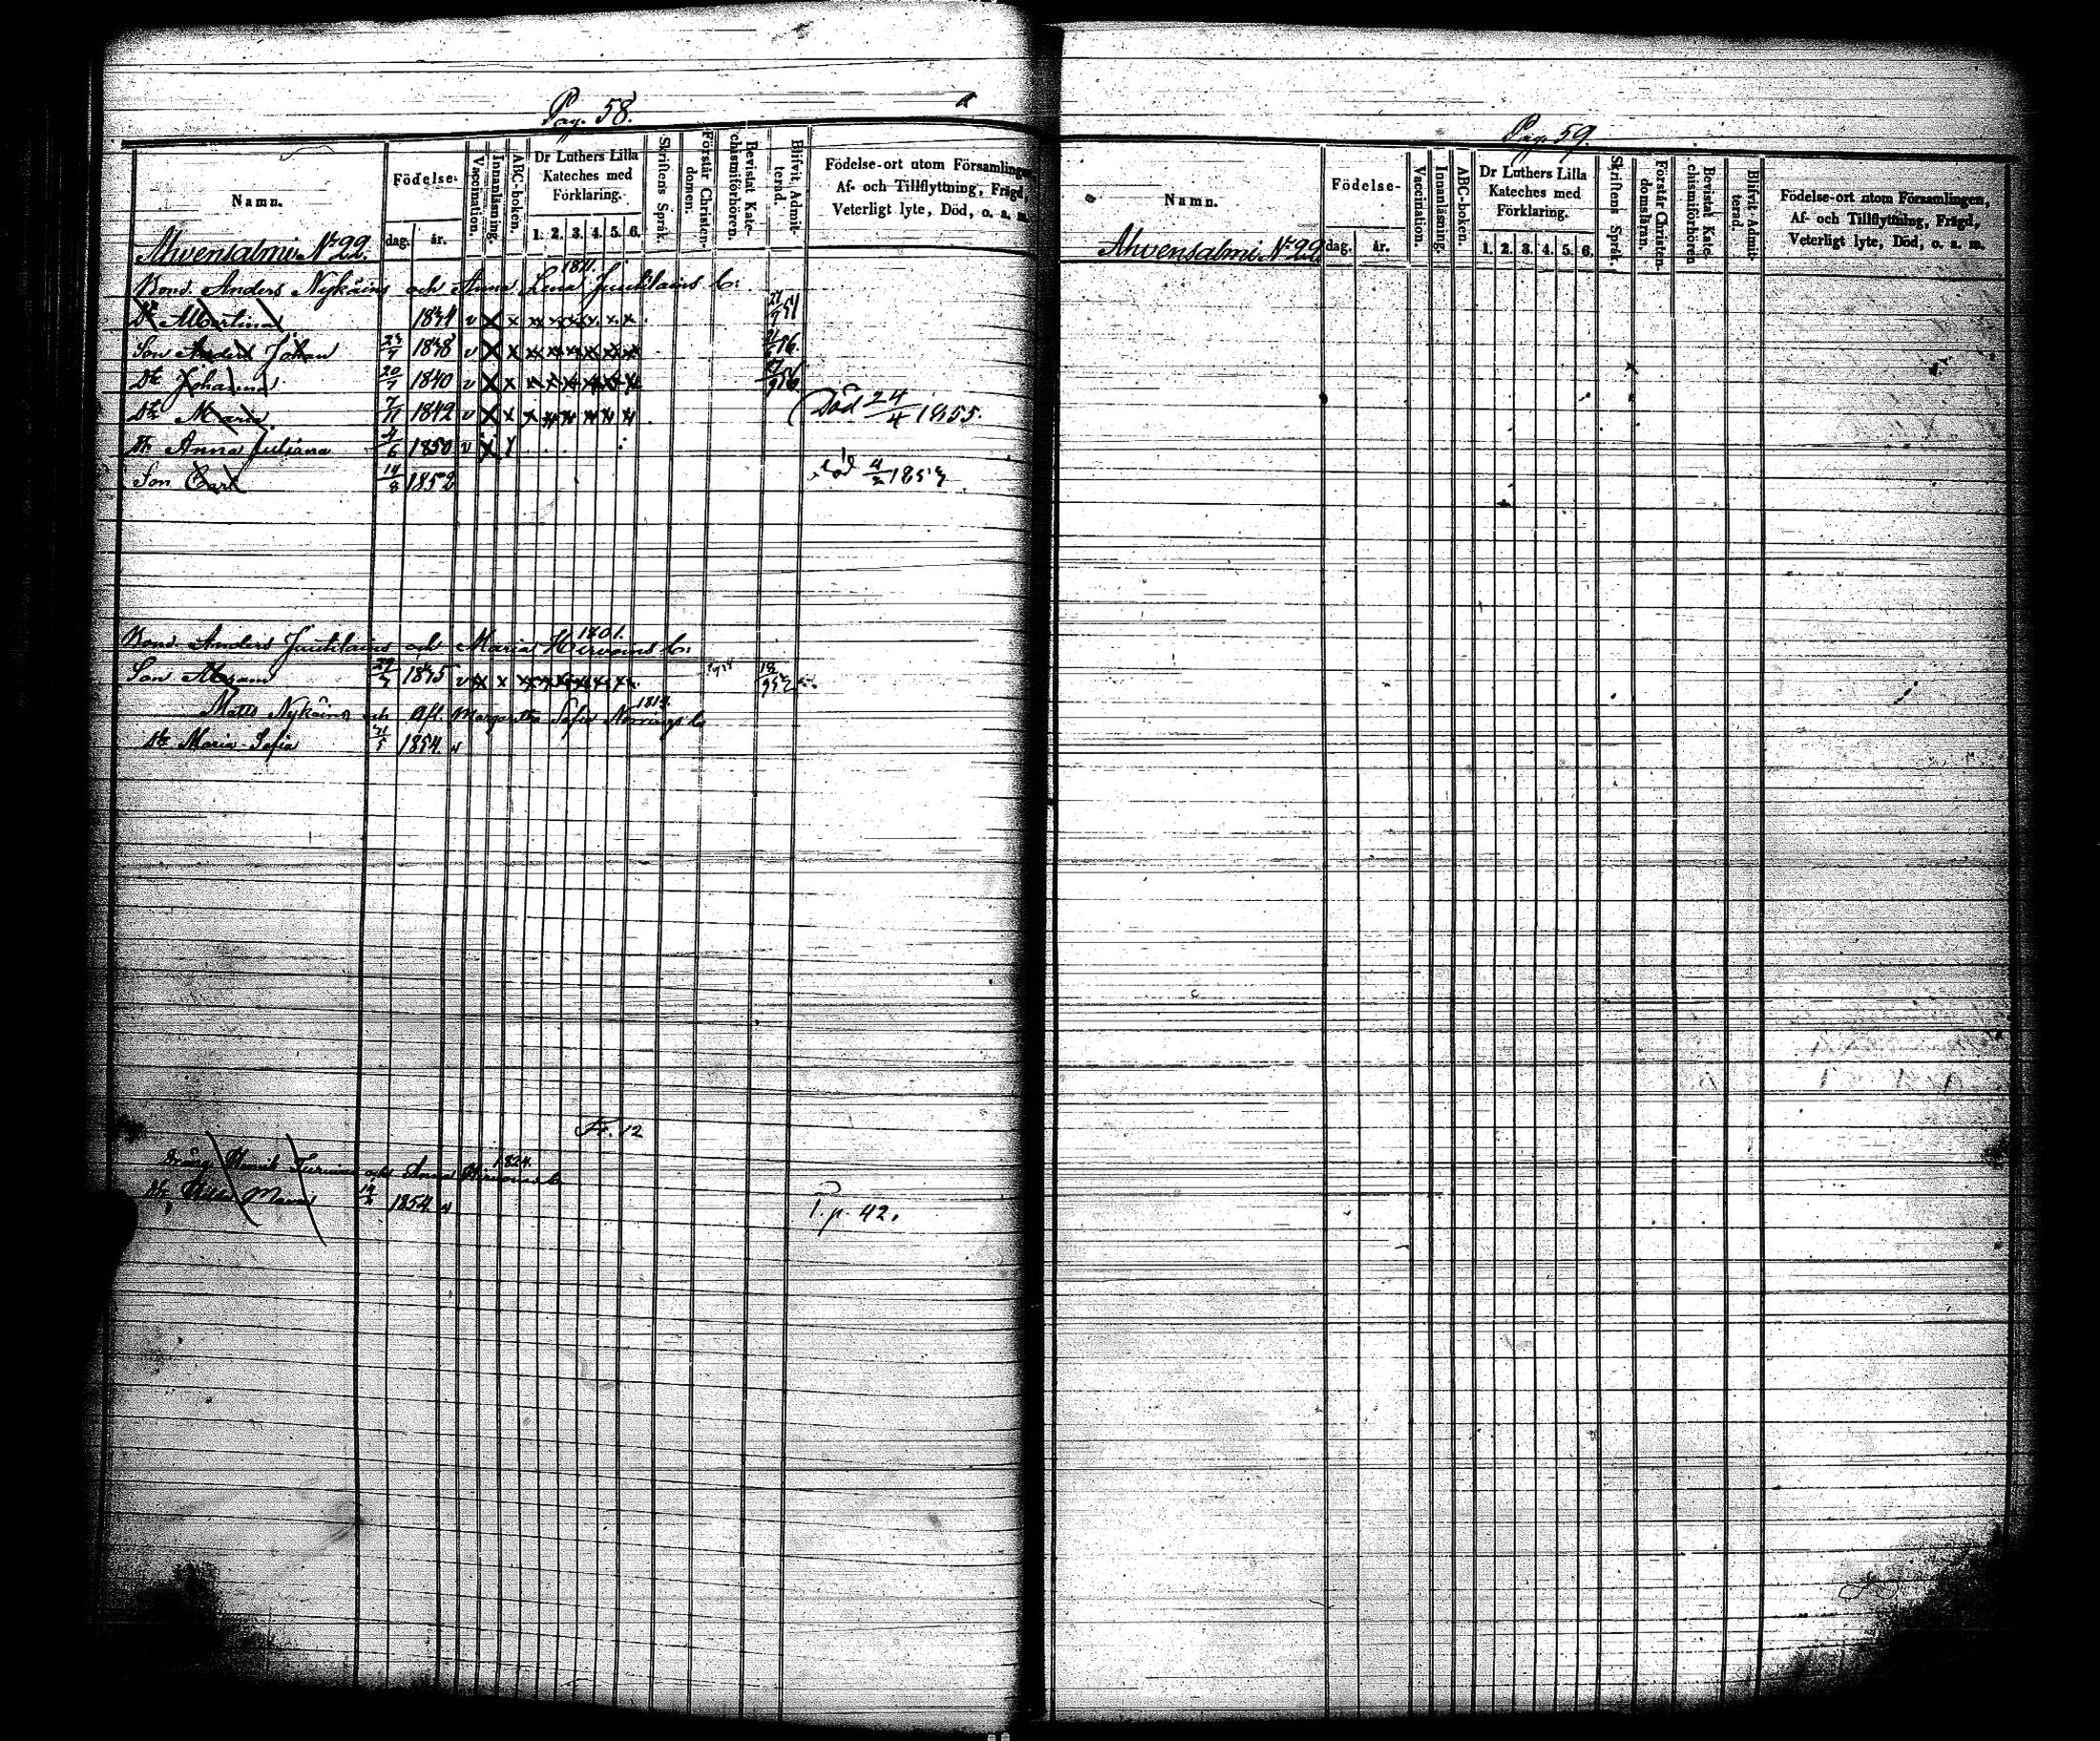 Pag. 58.
Namn.
Födelse-
dag.
år.
Vaccination.
Innanläsning.
ABC-boken.
Dr Luthers Lilla
Kateches med
Förklaring.
1. 2. 3. 4. 5. 6.
Skriftens Språk.
Förstår Christen-
domen.
Bevistat Kate-
chismiförhören.
Blifvit Admit-
terad.
Födelse-ort utom Församlingen,
Af- och Tillflyttning, Frägd,
Veterligt lyte, Död, o. s. m.
Ahvensalmi No 22.
1811.
Bond. Anders Nykäins och Anna Lena Juutilains b:
Dr Albertina 1834 v x x
Son Anders Johan 1838 v x x
Dr Johanna 20/7 1840 v x x
Dr Maria 7/11 1842 v x x Död 24/4 1855.
Dr Anna Juliana 4/6 1850 v x
Son Carl 14/8 1852 död
1801.
Bond Anders Juutilains och Maria Hirvoins b:
Son Abram 1835 v x x
1819.
Matts Nykäins och Afl. Margaretha Sofia
Dr Maria Sofia 1854 v
Fr. 12
1824.
Dräng Henrik Turuins och Anna Hirvoins b
Dr Hilda Maria 1854 v T. p. 42.
Pag. 59.
Namn.
Födelse-
dag.
år.
Vaccination.
Innanläsning.
ABC-boken.
Dr Luthers Lilla
Kateches med
Förklaring.
1. 2. 3. 4. 5. 6.
Skriftens Språk.
Förstår Christen-
domsläran.
Bevistat Kate-
chismiförhören
Blifvit Admit-
terad.
Födelse-ort utom Församlingen,
Af- och Tillflyttning, Frägd,
Veterligt lyte, Död, o. s. m.
Ahvensalmi No 22